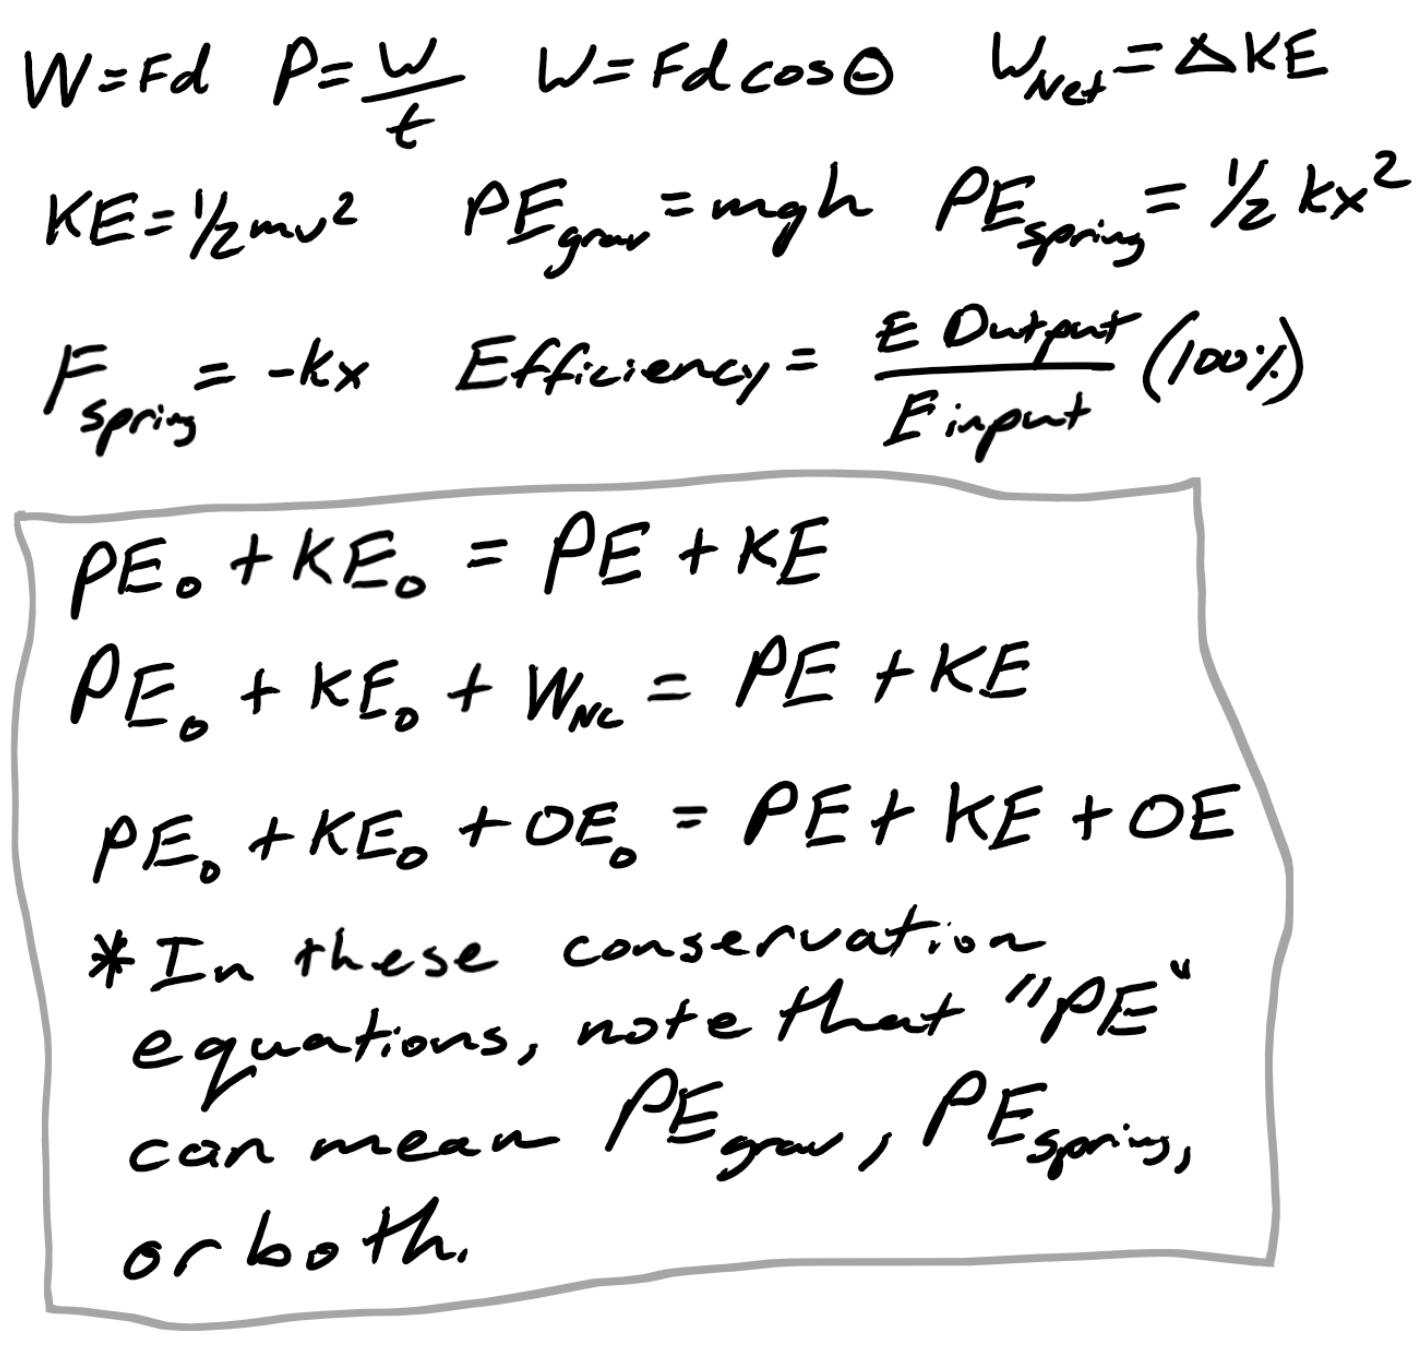 W=Fd P=W/t W=Fdcosθ W_Net=ΔKE
KE=½mv² PE_grav=mgh PE_spring=½kx²
F_spring=-kx Efficiency=E Output/E input (100%)
PE₀+KE₀=PE+KE
PE₀+KE₀+W_NC=PE+KE
PE₀+KE₀+OE₀=PE+KE+OE
*In these conservation
equations, note that "PE"
can mean PE_grav, PE_spring,
or both.